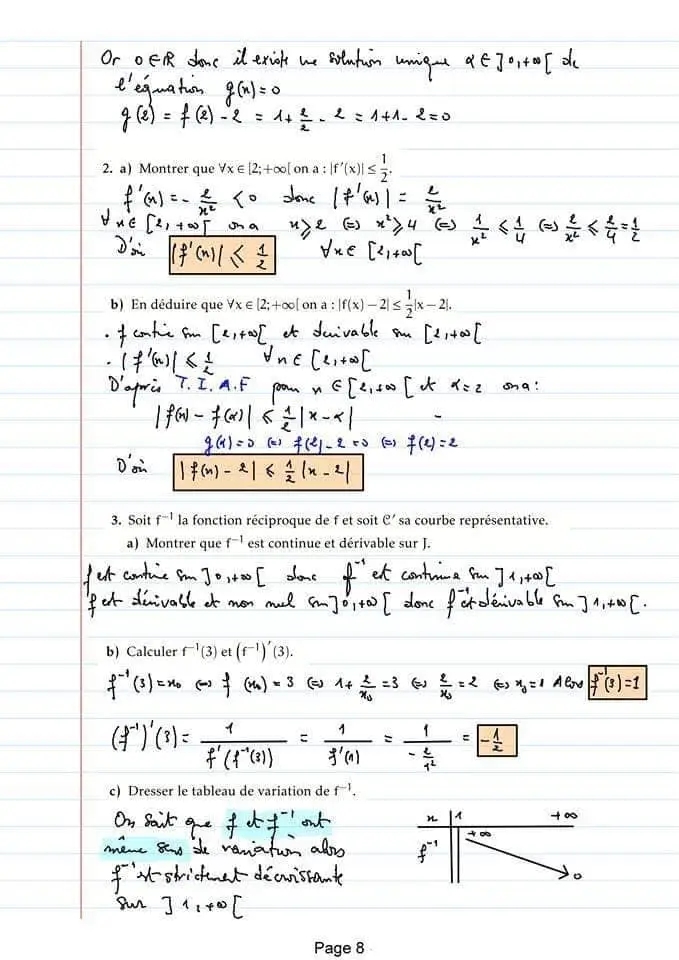 Or 0 ∈ ℝ donc il existe une solution unique α ∈ ]0,+∞[ de
l'équation g(x) = 0
g(2) = f(2) - 2 = 1 + 2/2 - 2 = 1+1-2 = 0
2. a) Montrer que ∀x ∈ [2;+∞[ on a : |f'(x)| ≤ 1/2.
f'(x) = - 2/x² < 0 donc |f'(x)| = 2/x²
∀x ∈ [2,+∞[ on a x ≥ 2 ⇔ x² ≥ 4 ⇔ 1/x² ≤ 1/4 ⇔ 2/x² ≤ 2/4 = 1/2
D'où |f'(x)| ≤ 1/2 ∀x ∈ [2,+∞[
b) En déduire que ∀x ∈ [2;+∞[ on a : |f(x) − 2| ≤ 1/2|x − 2|.
. f contie sur [2,+∞[ et derivable sur [2,+∞[
. |f'(x)| ≤ 1/2 ∀x ∈ [2,+∞[
D'après T.I.A.F pour x ∈ [2,+∞[ et α = 2 on a :
|f(x) - f(α)| ≤ 1/2 |x - α|
g(α) = 0 ⇔ f(2) - 2 = 0 ⇔ f(2) = 2
D'où |f(x) - 2| ≤ 1/2 |x - 2|
3. Soit f⁻¹ la fonction réciproque de f et soit C' sa courbe représentative.
a) Montrer que f⁻¹ est continue et dérivable sur J.
f est continue sur ]0,+∞[ donc f⁻¹ est continue sur ]1,+∞[
f est dérivable et non nul sur ]0,+∞[ donc f⁻¹ est dérivable sur ]1,+∞[.
b) Calculer f⁻¹(3) et (f⁻¹)'(3).
f⁻¹(3) = x₀ ⇔ f(x₀) = 3 ⇔ 1 + 2/x₀ = 3 ⇔ 2/x₀ = 2 ⇔ x₀ = 1 Alors f⁻¹(3) = 1
(f⁻¹)'(3) = 1/f'(f⁻¹(3)) = 1/f'(1) = 1/(- 2/1²) = - 1/2
c) Dresser le tableau de variation de f⁻¹.
On sait que f et f⁻¹ ont
même sens de variation alors
f⁻¹ est strictement décroissante
sur ]1,+∞[
x 1 +∞
f⁻¹ +∞ 0
Page 8